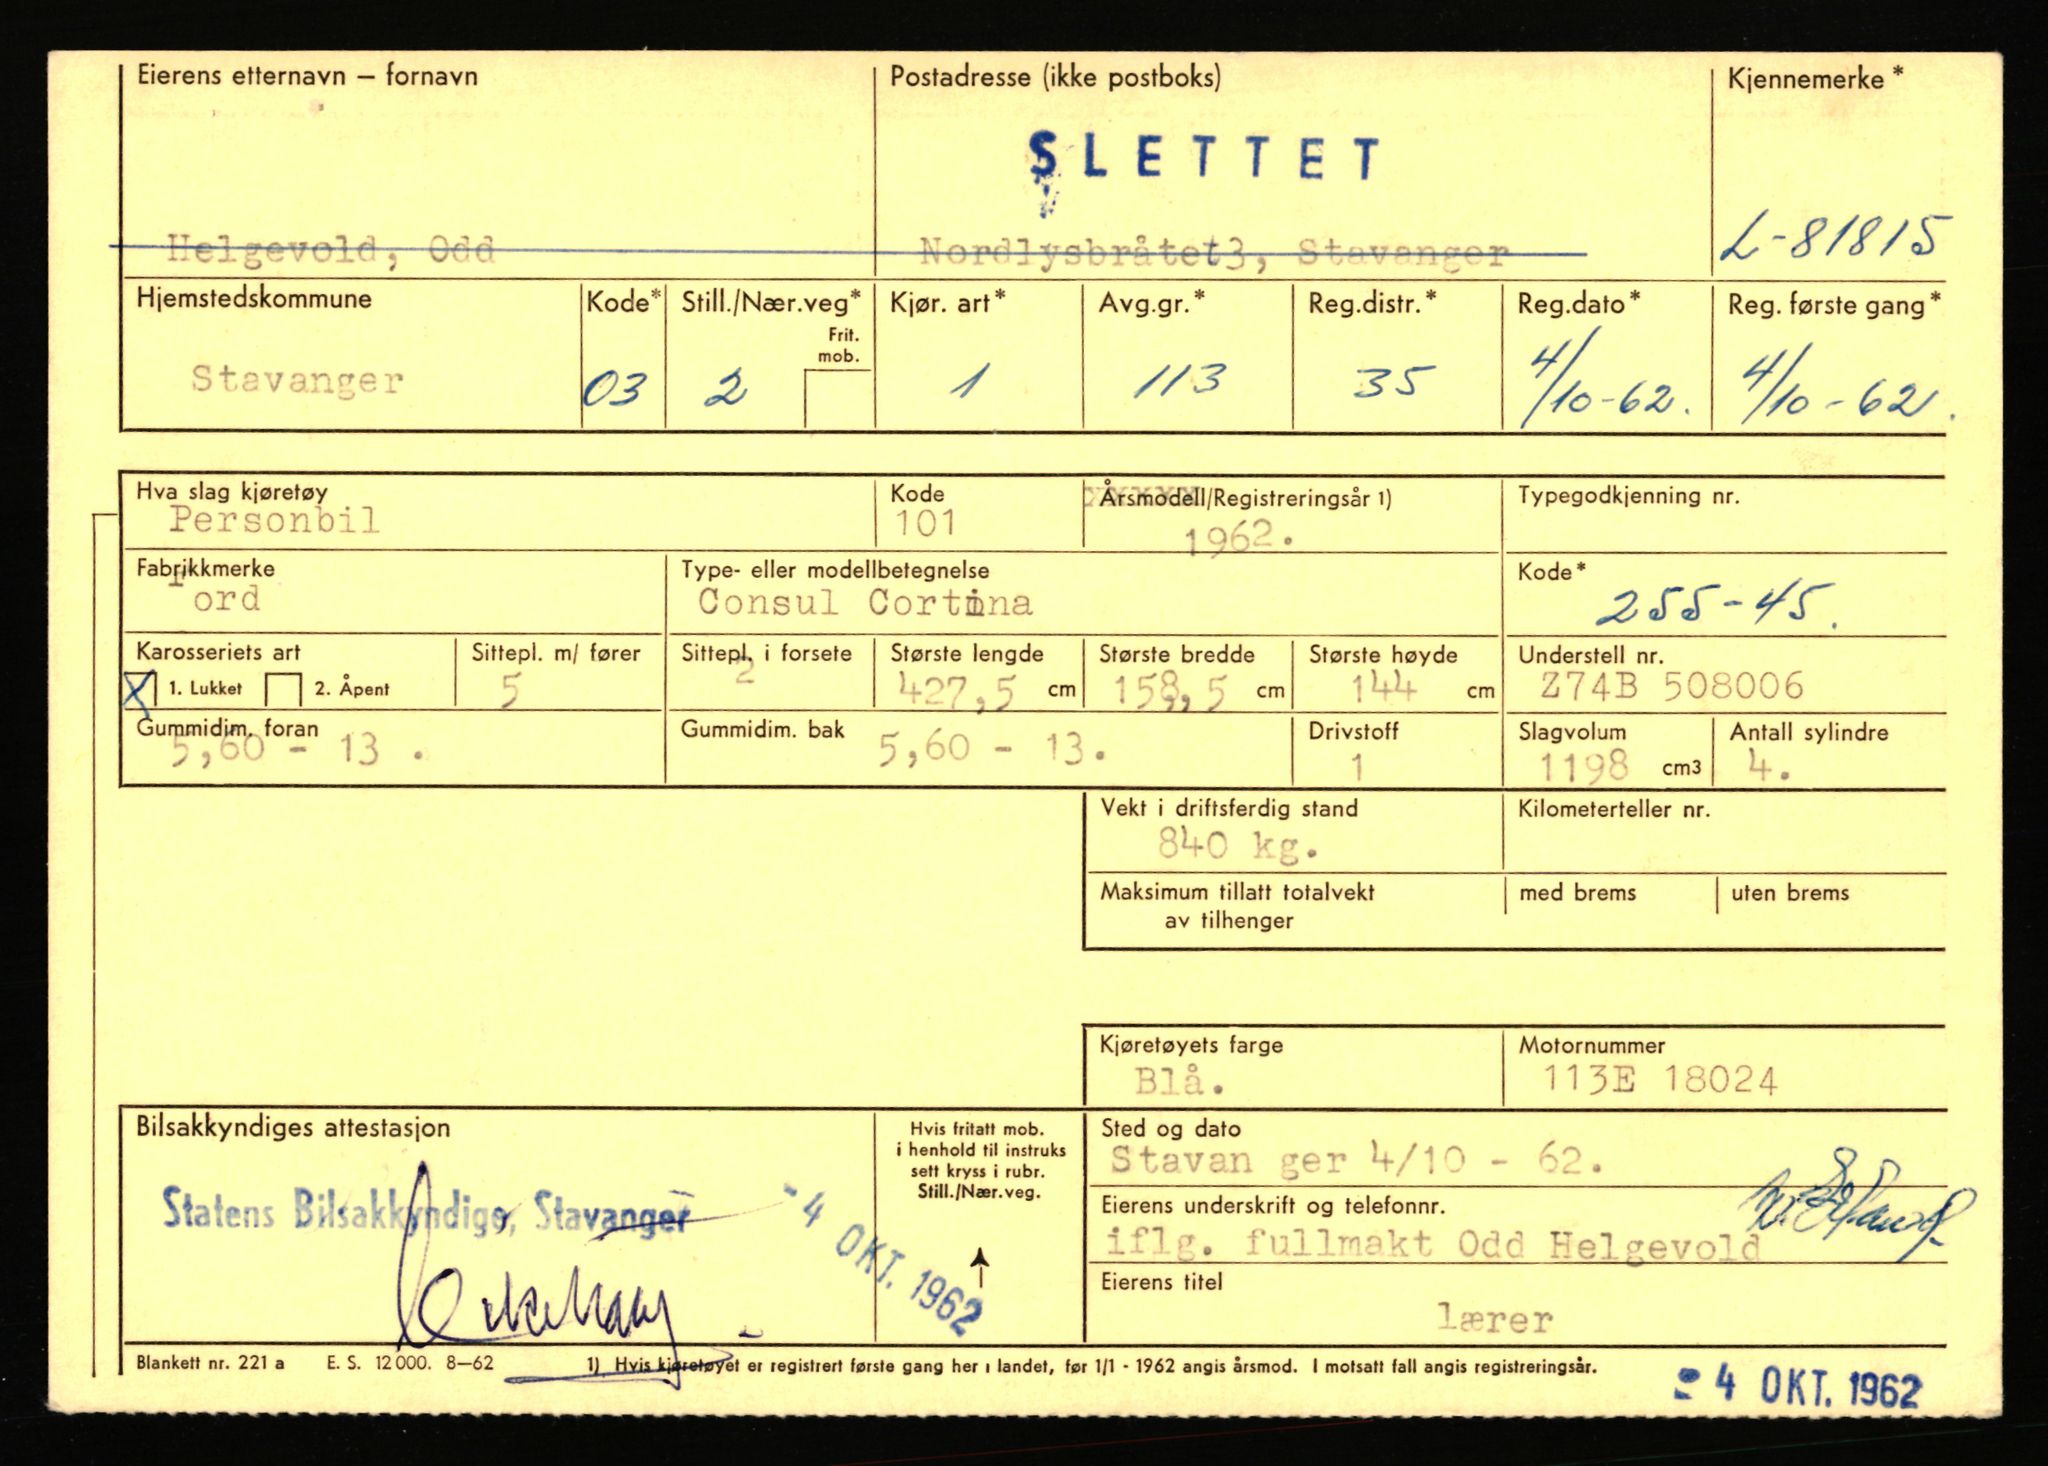 Eierens etternavn – fornavn
Postadresse (ikke postboks)
Kjennemerke*
SLETTET
Helgevold, Odd
Nordlysbråtet3, Stavanger
L-81815
Hjemstedskommune
Kode*
Still./Nær.veg*
Frit.
mob.
Kjør. art*
Avg.gr.*
Reg.distr.*
Reg.dato*
Reg. første gang*
Stavanger
03
2
1
113
35
4/10-62.
4/10-62.
Hva slag kjøretøy
Personbil
Kode
101
Årsmodell/Registreringsår 1)
1962.
Typegodkjenning nr.
Fabrikkmerke
Ford
Type- eller modellbetegnelse
Consul Cortina
Kode*
255-45.
Karosseriets art
X 1. Lukket 2. Åpent
Sittepl. m/ fører
5
Sittepl. i forsete
2
Største lengde
427,5 cm
Største bredde
158,5 cm
Største høyde
144 cm
Understell nr.
Z74B 508006
Gummidim. foran
5,60 - 13.
Gummidim. bak
5,60 - 13.
Drivstoff
1
Slagvolum
1198 cm3
Antall sylindre
4.
Vekt i driftsferdig stand
840 kg.
Kilometerteller nr.
Maksimum tillatt totalvekt
av tilhenger
med brems
uten brems
Kjøretøyets farge
Blå.
Motornummer
113E 18024
Bilsakkyndiges attestasjon
Statens Bilsakkyndige, Stavanger
- 4 OKT. 1962
Hvis fritatt mob.
i henhold til instruks
sett kryss i rubr.
Still./Nær.veg.
Sted og dato
Stavan ger 4/10 - 62.
Eierens underskrift og telefonnr.
iflg. fullmakt Odd Helgevold
Eierens titel
lærer
Blankett nr. 221 a E. S. 12 000. 8–62
1) Hvis kjøretøyet er registrert første gang her i landet, før 1/1 - 1962 angis årsmod. I motsatt fall angis registreringsår.
- 4 OKT. 1962